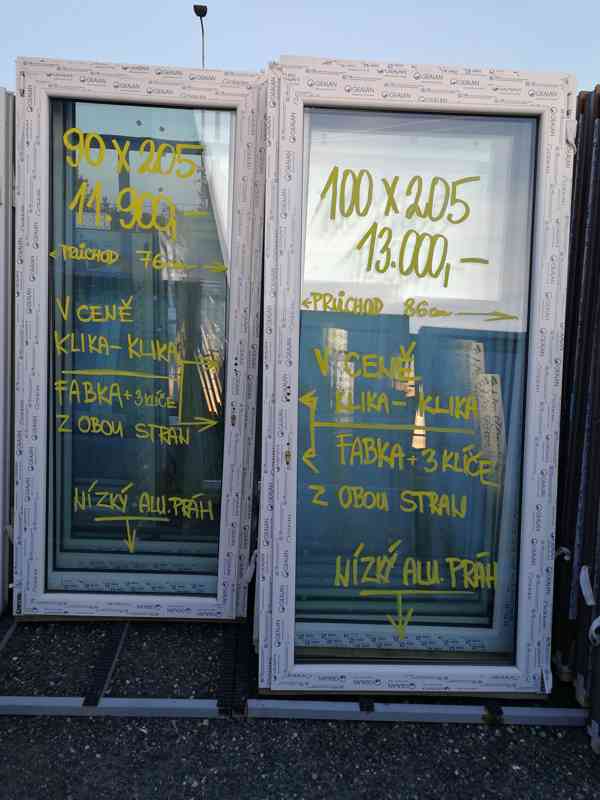 90 X 205
11.900,-
PRŮCHOD 76cm
V CENĚ
KLIKA-KLIKA
FABKA+3 KLÍČE
Z OBOU STRAN
NÍZKÝ ALU. PRÁH
100 X 205
13.000,-
PRŮCHOD 86cm
V CENĚ
KLIKA - KLIKA
FABKA + 3 KLÍČE
Z OBOU STRAN
NÍZKÝ ALU. PRÁH
GEALAN